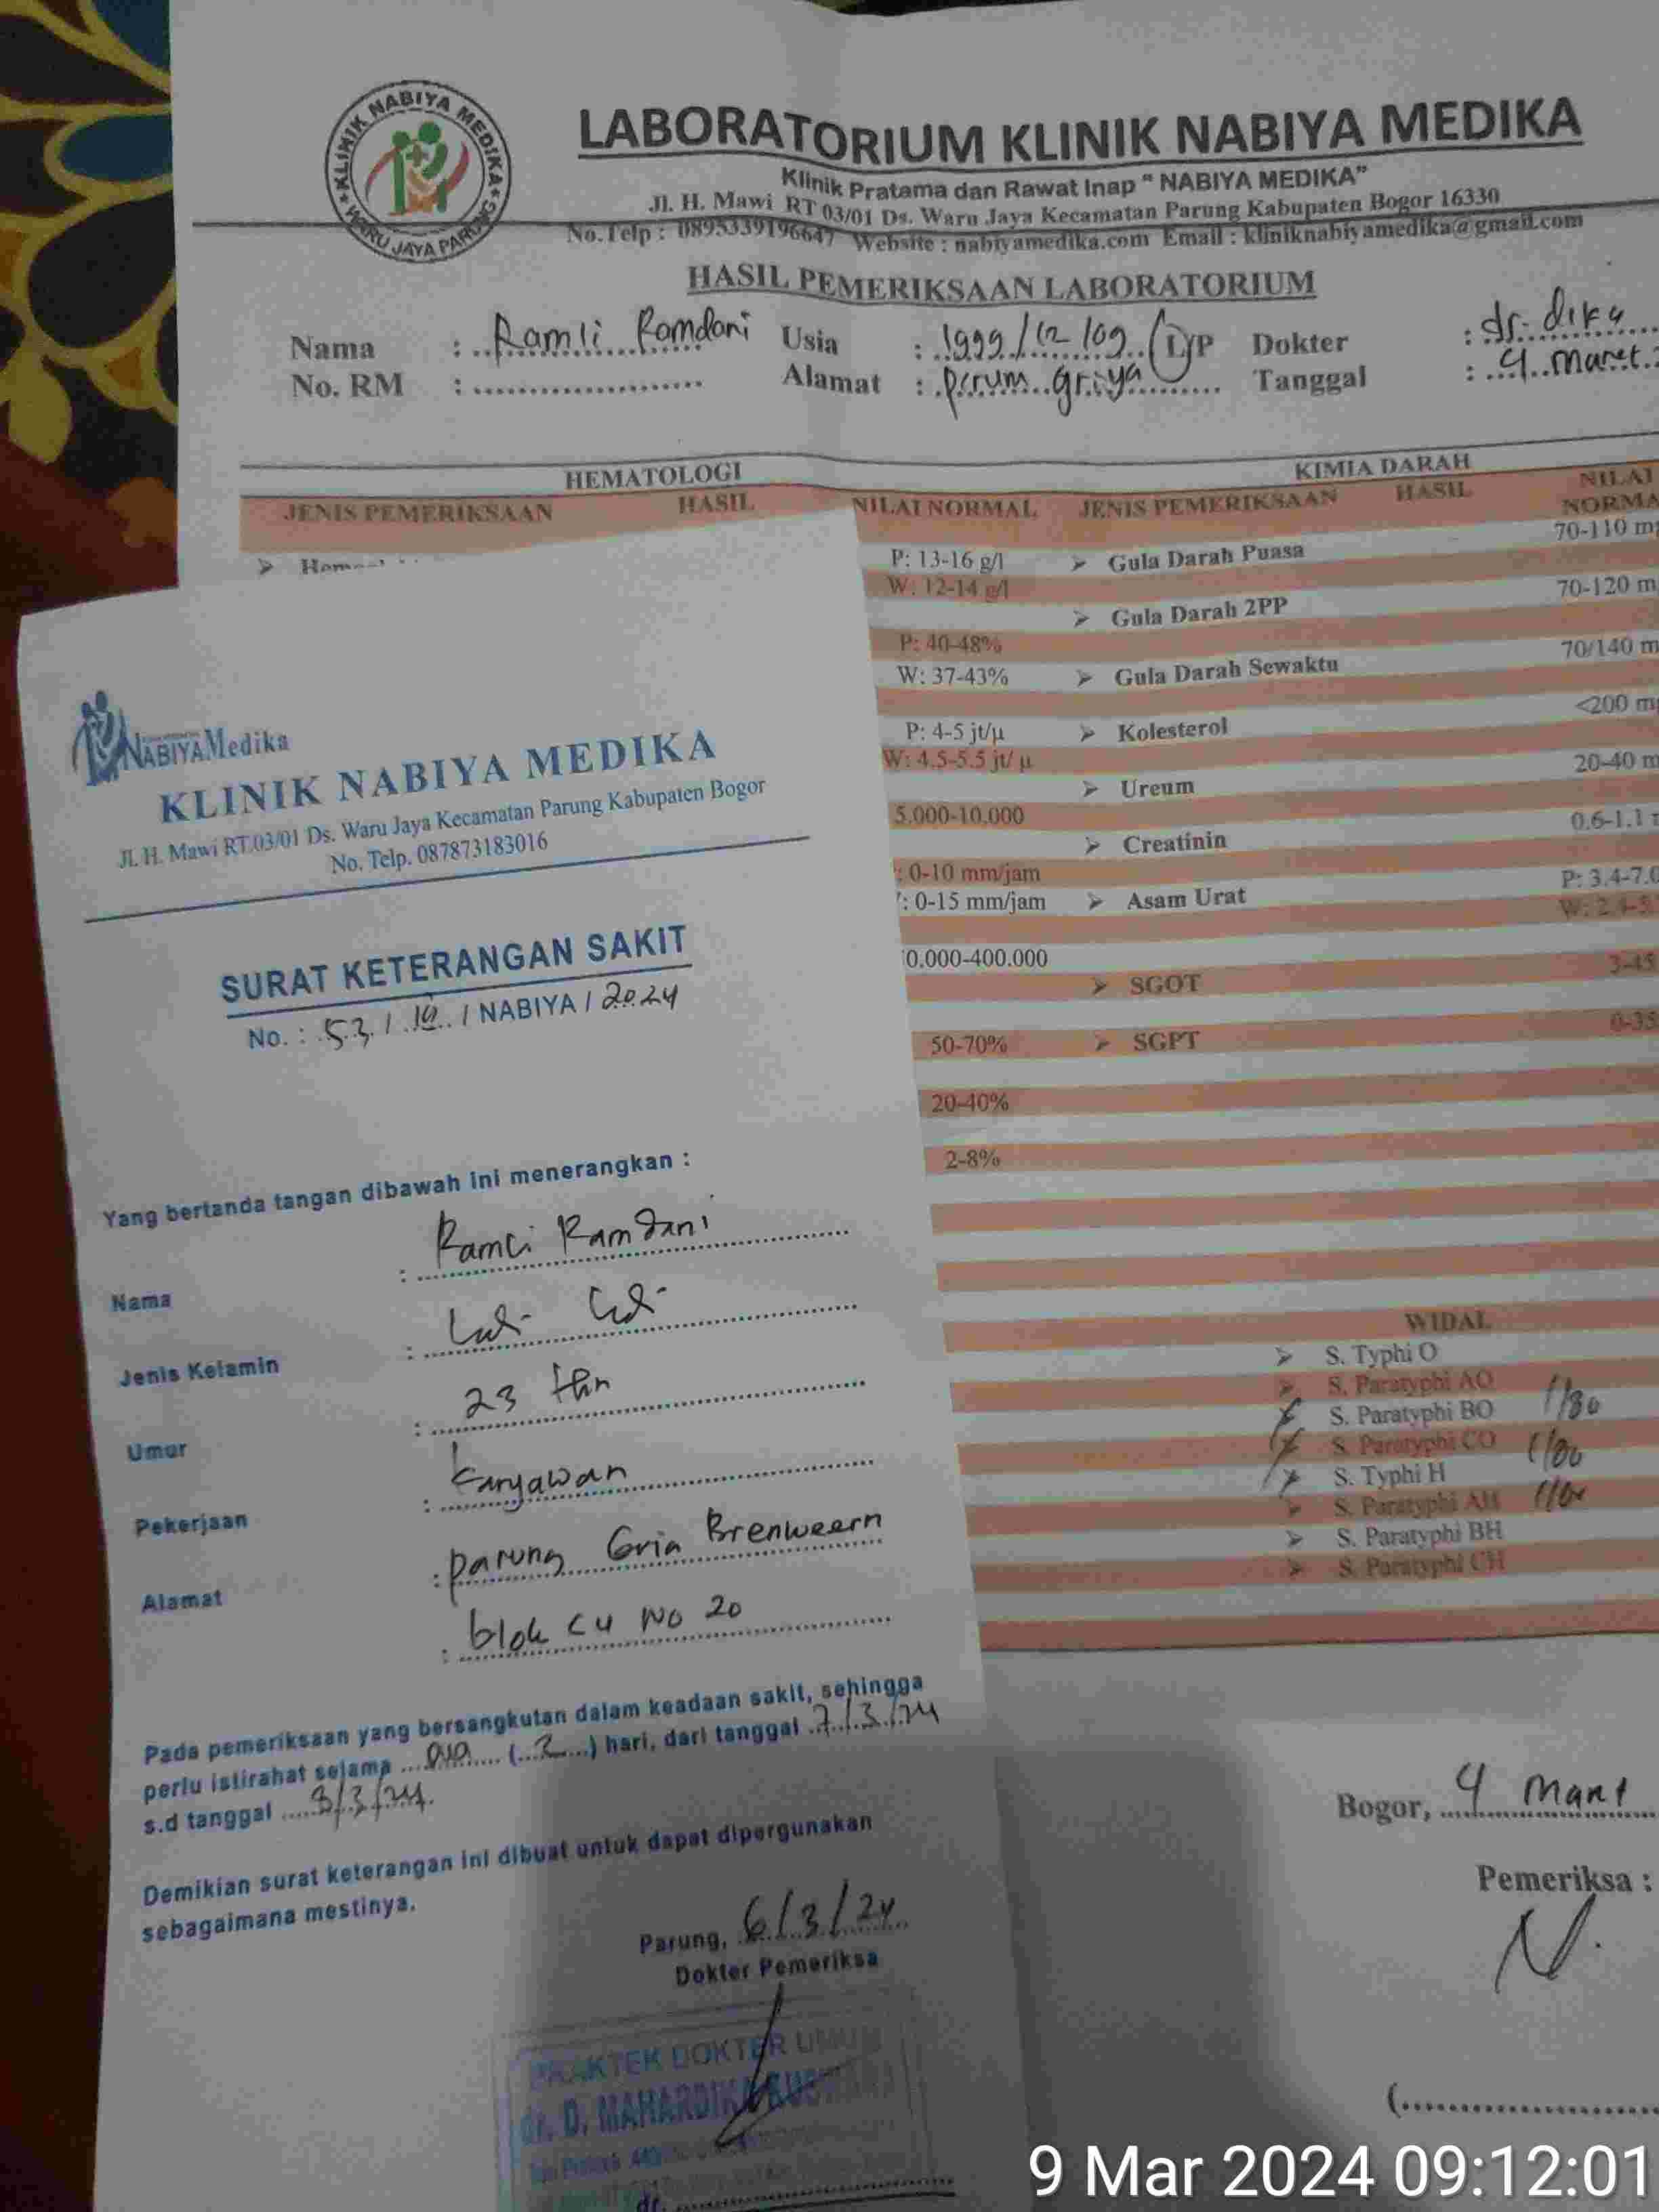 KLINIK NABIYA MEDIKA
WARU JAYA PARUNG
LABORATORIUM KLINIK NABIYA MEDIKA
Klinik Pratama dan Rawat Inap " NABIYA MEDIKA"
Jl. H. Mawi RT 03/01 Ds. Waru Jaya Kecamatan Parung Kabupaten Bogor 16330
No.Telp : 0895339196647 Website : nabiyamedika.com Email : kliniknabiyamedika@gmail.com
HASIL PEMERIKSAAN LABORATORIUM
Nama : Ramli Ramdani Usia : 1999/12/09 (L)/P Dokter : dr. dika
No. RM : Alamat : perum griya Tanggal : 4 maret
HEMATOLOGI KIMIA DARAH
JENIS PEMERIKSAAN HASIL NILAI NORMAL JENIS PEMERIKSAAN HASIL NILAI
P: 13-16 g/l Gula Darah Puasa 70-110
W: 12-14 g/l
Gula Darah 2PP 70-120
P: 40-48%
W: 37-43% Gula Darah Sewaktu 70/140
P: 4-5 jt/µ Kolesterol <200
W: 4.5-5.5 jt/ µ
Ureum 20-40
5.000-10.000
Creatinin 0.6-1.1
: 0-10 mm/jam
: 0-15 mm/jam Asam Urat P: 3.4-7.0
0.000-400.000
SGOT 3-45
50-70% SGPT 0-35
20-40%
2-8%
WIDAL
S. Typhi O
S. Paratyphi AO
S. Paratyphi BO 1/80
S. Paratyphi CO
S. Typhi H
S. Paratyphi AH
S. Paratyphi BH
S. Paratyphi CH
Bogor, 4 Mart
Pemeriksa :
NABIYA Medika
KLINIK NABIYA MEDIKA
Jl. H. Mawi RT.03/01 Ds. Waru Jaya Kecamatan Parung Kabupaten Bogor
No. Telp. 087873183016
SURAT KETERANGAN SAKIT
No. : 53 / / NABIYA / 2024
Yang bertanda tangan dibawah ini menerangkan :
Nama : Ramli Ramdani
Jenis Kelamin :
Umur : 23 thn
Pekerjaan : Karyawan
Alamat : parung Gria Brenweern
: blok C4 No 20
Pada pemeriksaan yang bersangkutan dalam keadaan sakit, sehingga
perlu istirahat selama dua (2) hari, dari tanggal 7/3/24
s.d tanggal 8/3/24.
Demikian surat keterangan ini dibuat untuk dapat dipergunakan
sebagaimana mestinya.
Parung, 6/3/24
Dokter Pemeriksa
PRAKTEK DOKTER UMUM
dr. D. MAHARDIKA
dr.
9 Mar 2024 09:12:01